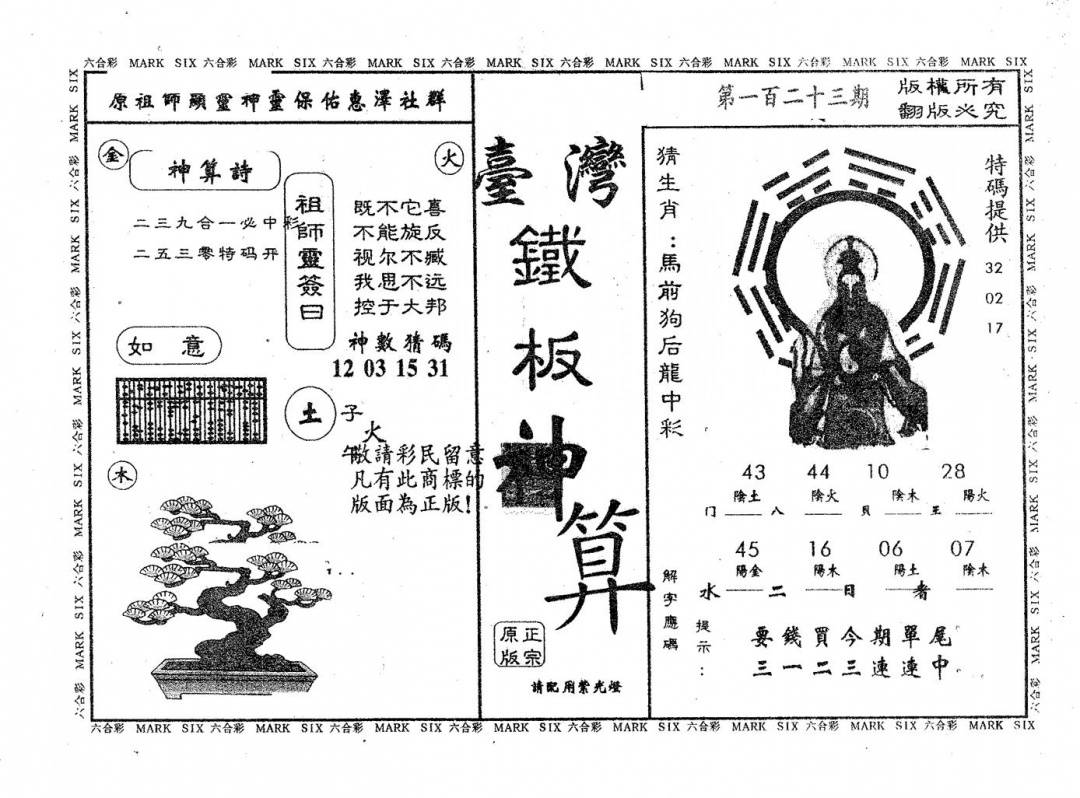 六合彩 MARK SIX 六合彩 MARK SIX 六合彩 MARK SIX 六合彩 MARK SIX 六合彩 MARK SIX 六合彩 MARK SIX 六合彩 MARK SIX 六合彩 MARK SIX
原祖師顯靈神靈保佑惠澤社群
金
神算詩
火
二三九合一必中彩
二五三零特码开
祖師靈簽曰
既不它喜
不能旋反
视尔不臧
我思不远
控于大邦
神數猜碼
12 03 15 31
如意
土
子
火
午
敬請彩民留意
凡有此商標的
版面為正版!
木
臺灣
鐵板神算
正宗
原版
請配用紫光燈
第一百二十三期
版權所有
翻版必究
猜生肖:馬前狗后龍中彩
特碼提供
32
02
17
43 44 10 28
陰土 陰火 陰木 陽火
门 八 貝 王
45 16 06 07
陽金 陽木 陽土 陰木
水 二 日 者
解字應碼
提示:
要錢買今期單尾
三一二三連連中。
六合彩 MARK SIX 六合彩 MARK SIX 六合彩 MARK SIX 六合彩 MARK SIX 六合彩 MARK SIX 六合彩 MARK SIX 六合彩 MARK SIX 六合彩 MARK SIX
六合彩 MARK SIX 六合彩 MARK SIX 六合彩 MARK SIX 六合彩 MARK SIX 六合彩 MARK SIX
六合彩 MARK SIX 六合彩 MARK SIX 六合彩 MARK SIX 六合彩 MARK SIX 六合彩 MARK SIX